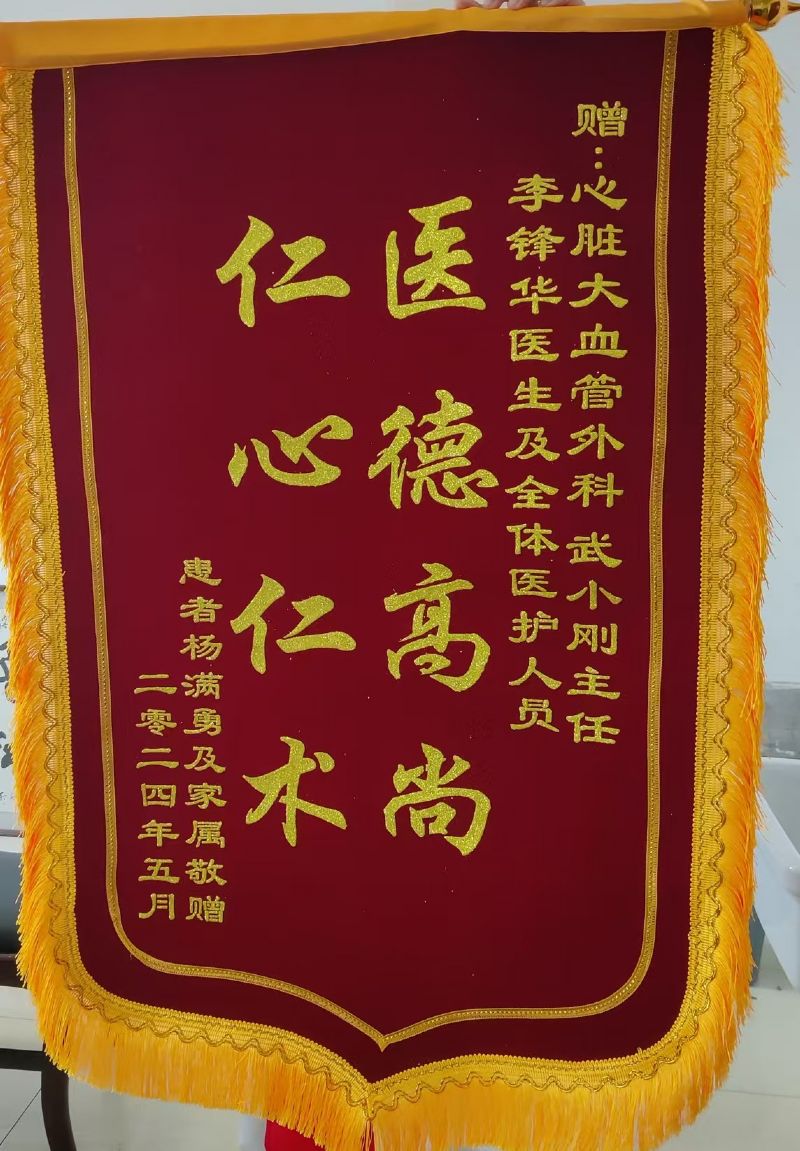 赠：心脏大血管外科 武小刚主任
李锋华医生及全体医护人员
医德高尚
仁心仁术
患者杨满勇及家属敬赠
二零二四年五月